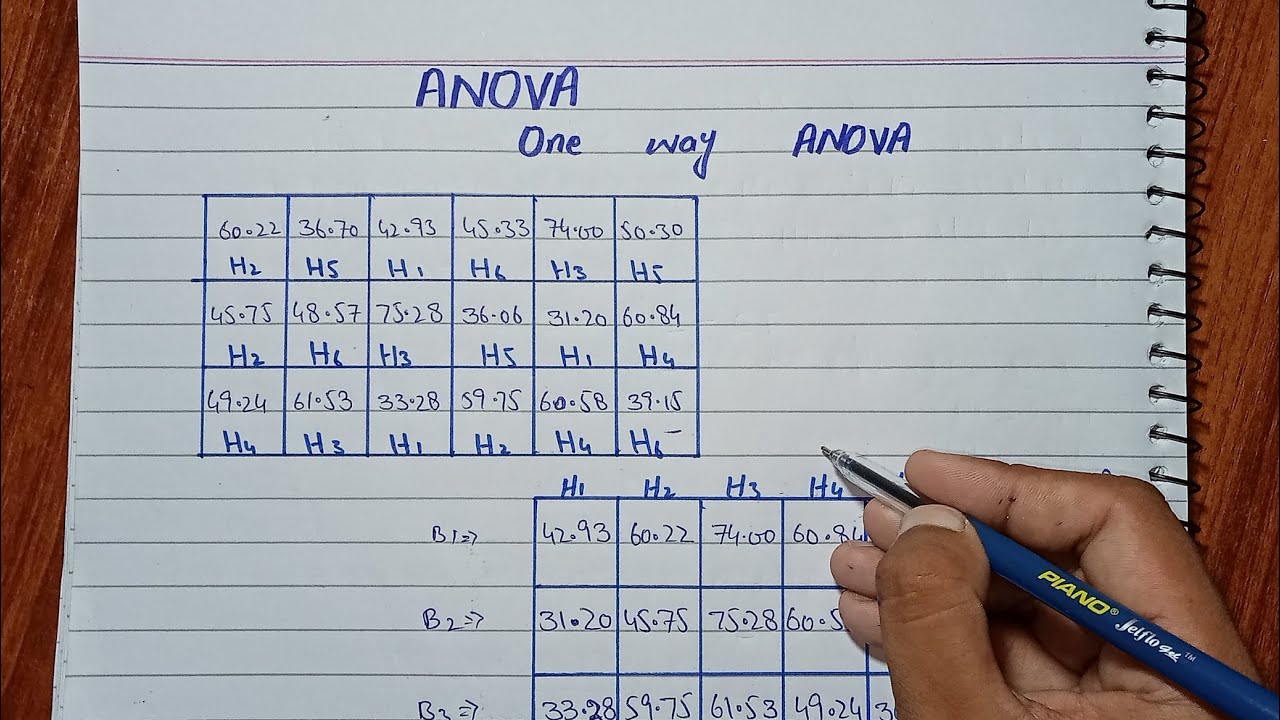 ANOVA
One way ANOVA
60.22 36.70 42.93 45.33 74.00 50.30
H2 H5 H1 H6 H3 H5
45.75 48.57 75.28 36.06 31.20 60.84
H2 H6 H3 H5 H1 H4
49.24 61.53 33.28 59.75 60.58 39.15
H4 H3 H1 H2 H4 H6
H1 H2 H3 H4
B1⇒ 42.93 60.22 74.00 60.84
B2⇒ 31.20 45.75 75.28 60.5
B3⇒ 33.28 59.75 61.53 49.24 3
PIANO® Jelflo Gel™